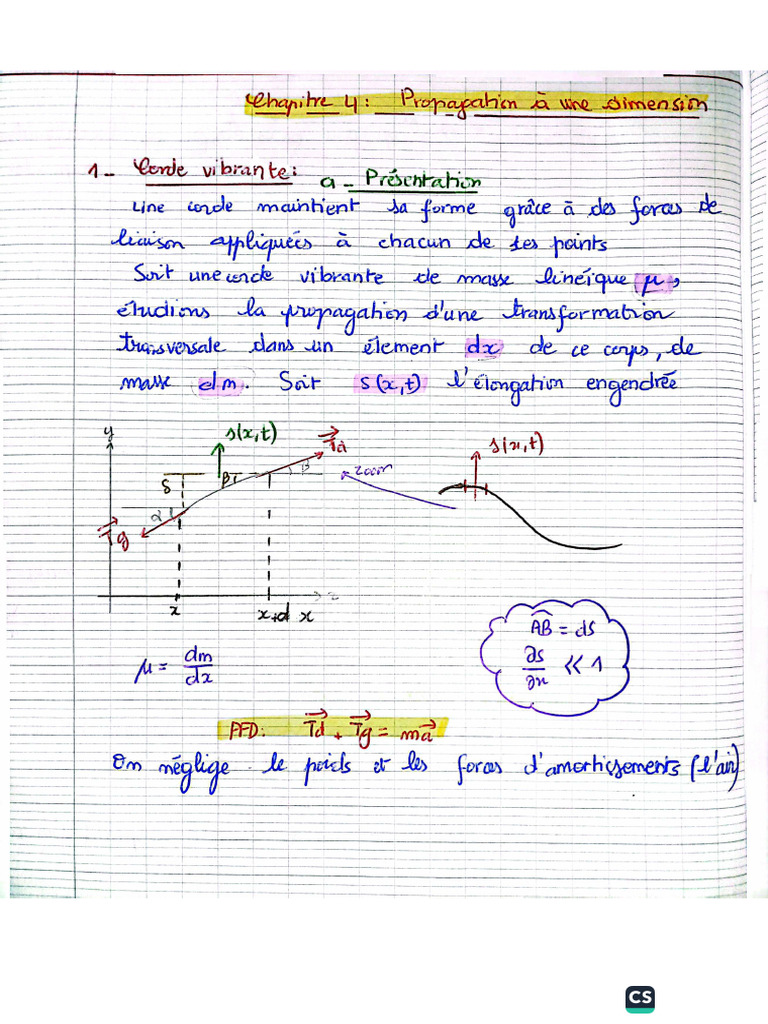 Chapitre 4: Propagation à une dimension
1- Corde vibrante: a - Présentation
Une corde maintient sa forme grâce à des forces de
liaison appliquées à chacun de ses points
Soit une corde vibrante de masse linéique μ,
étudions la propagation d'une transformation
transversale dans un élement dx de ce corps, de
masse dm. Soit s(x,t) l'élongation engendrée
y
s(x,t) Td
β zoom s(x,t)
δ β
α
Tg
x x+dx x
AB = ds
μ = dm/dx
∂s/∂x << 1
PFD: Td + Tg = ma
On néglige le poids et les forces d'amortissements (l'air)
CS